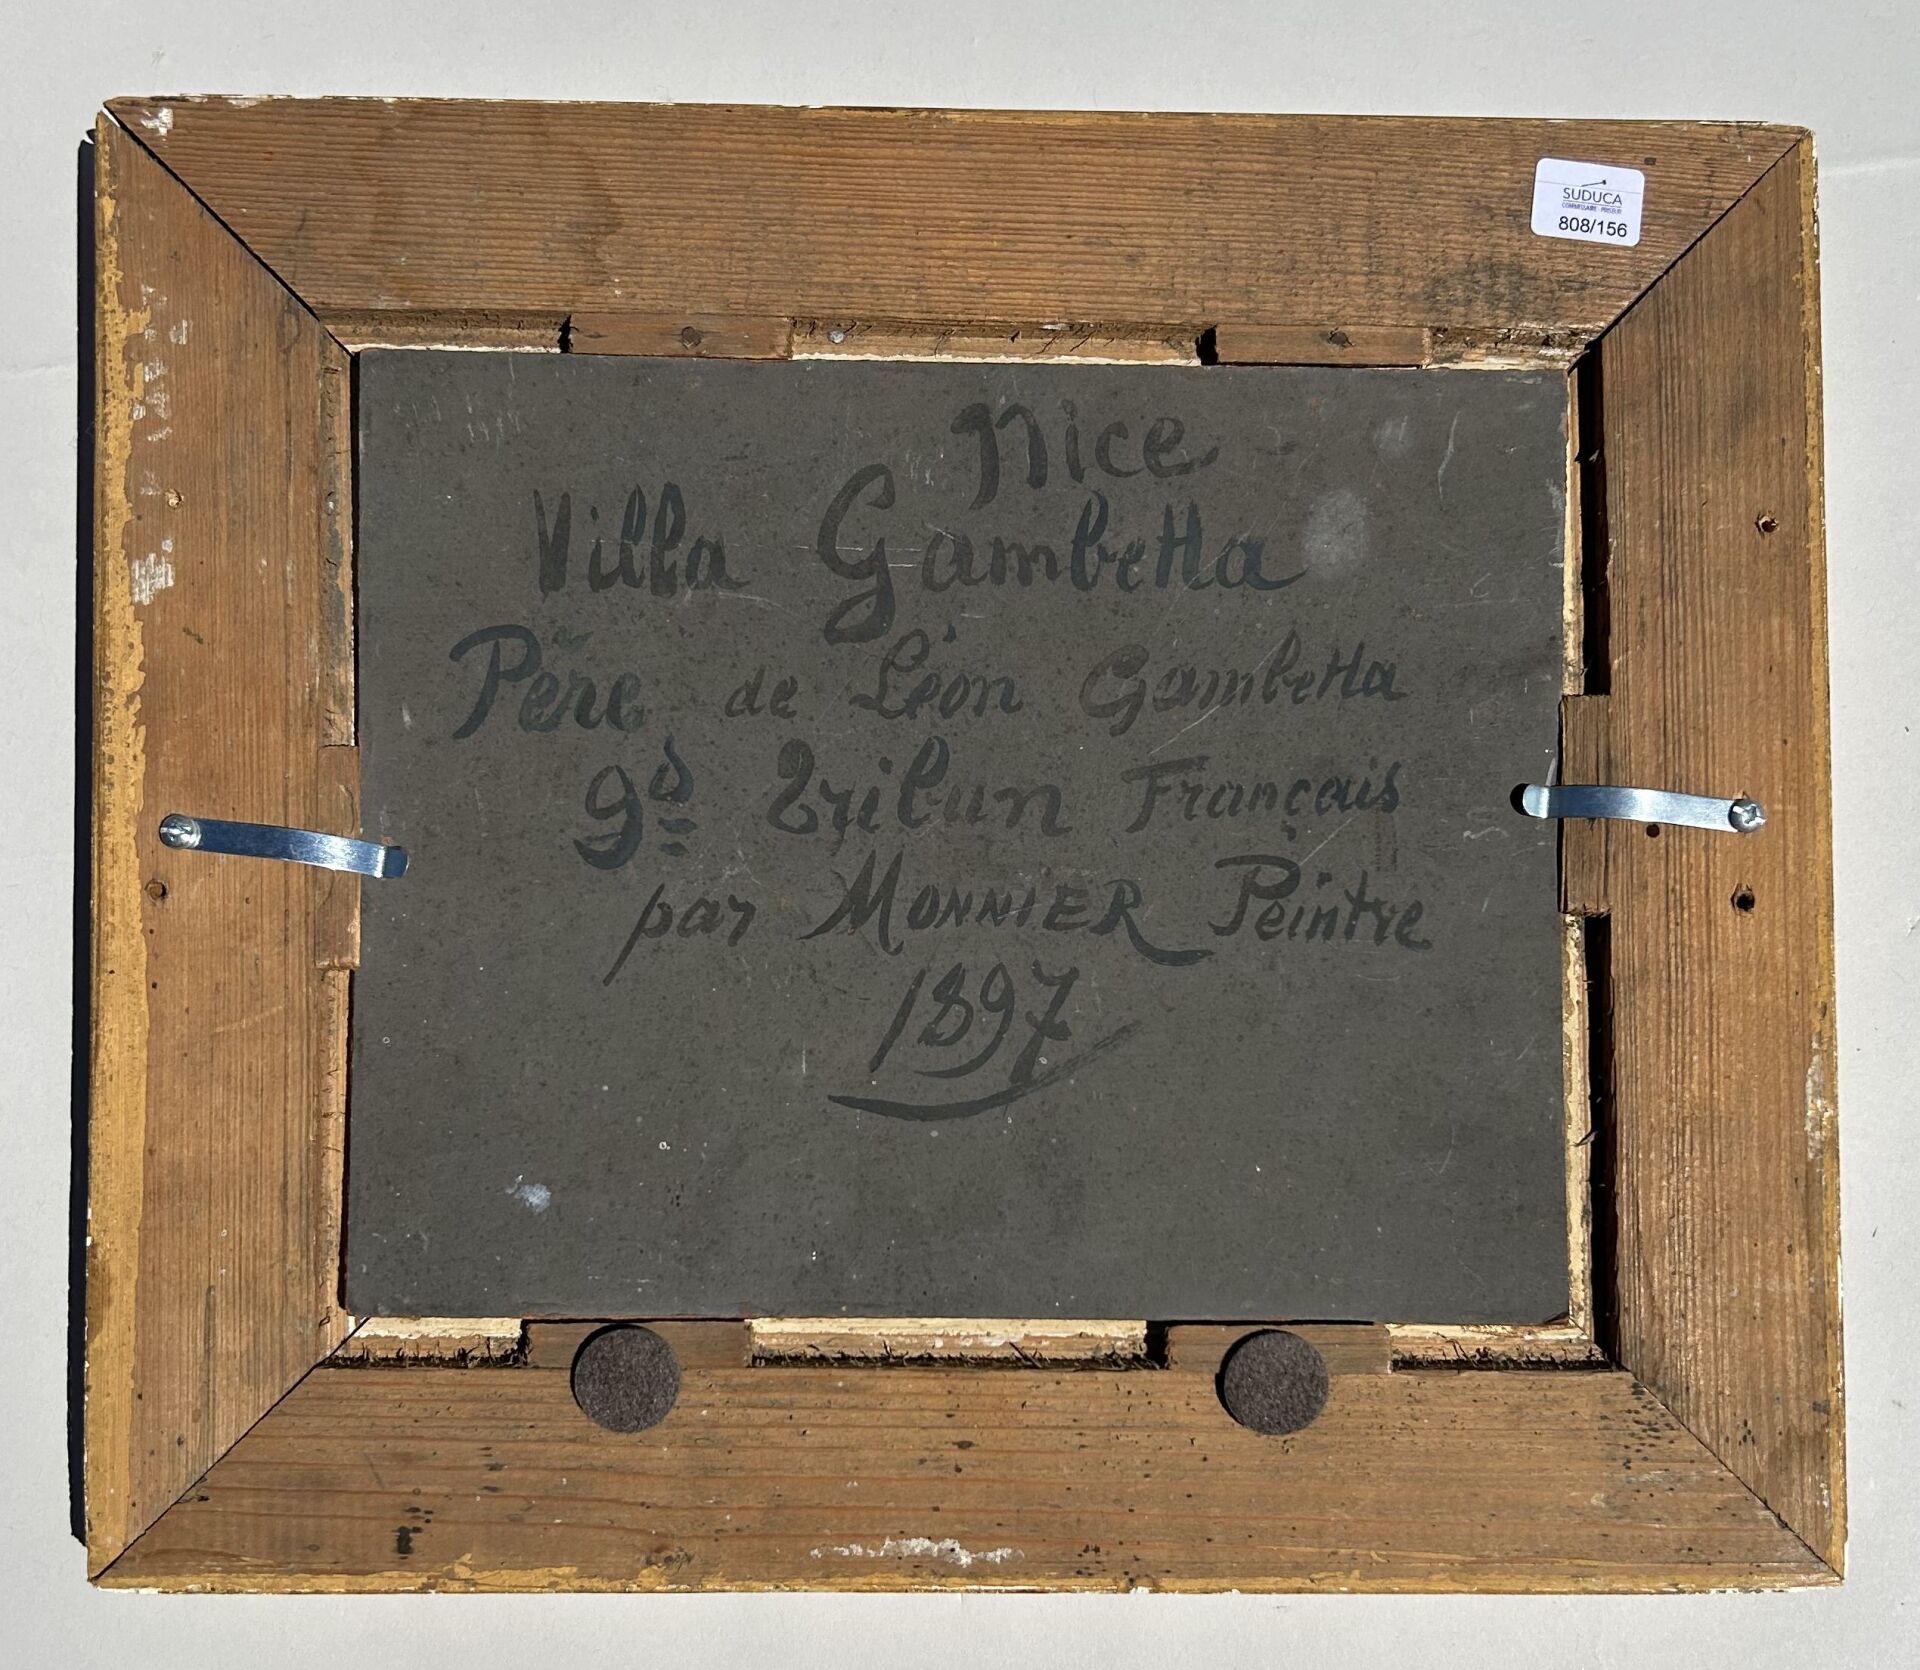 SUDUCA
COMMISSAIRE-PRISEUR
808/156
Nice
Villa Gambetta
Père de Léon Gambetta
gd Tribun Français
par MONNIER Peintre
1897